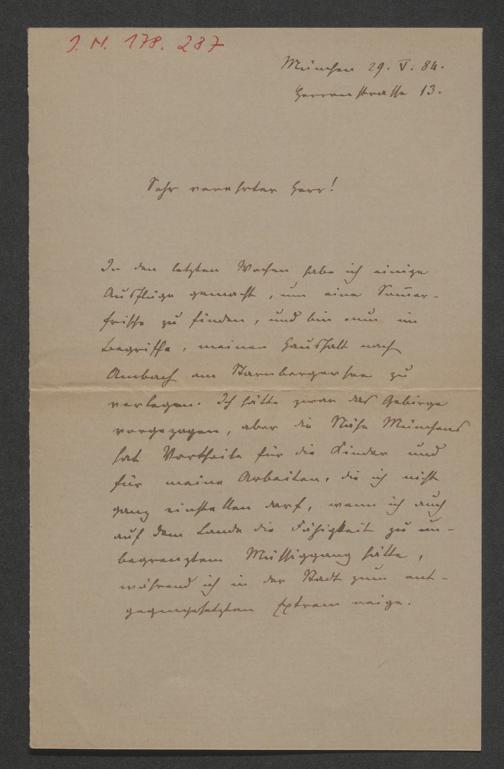 J. N. 178.287
München 29. V. 84.
Herrenstrasse 13.
Sehr verehrter Herr!
In den letzten Wochen habe ich einige
Ausflüge gemacht, um eine Sommer-
frische zu finden, und bin nun im
Begriffe, meinen Haushalt nach
Ambach am Starnbergersee zu
verlegen. Ich hätte zwar das Gebirge
vorgezogen, aber die Nähe Münchens
hat Vortheile für die Kinder und
für meine Arbeiten, die ich nicht
ganz einstellen darf, wenn ich auch
auf dem Lande die Fähigkeit zu un-
begrenztem Müssiggang hätte,
während ich in der Stadt zum ent-
gegengesetzten Extrem neige.